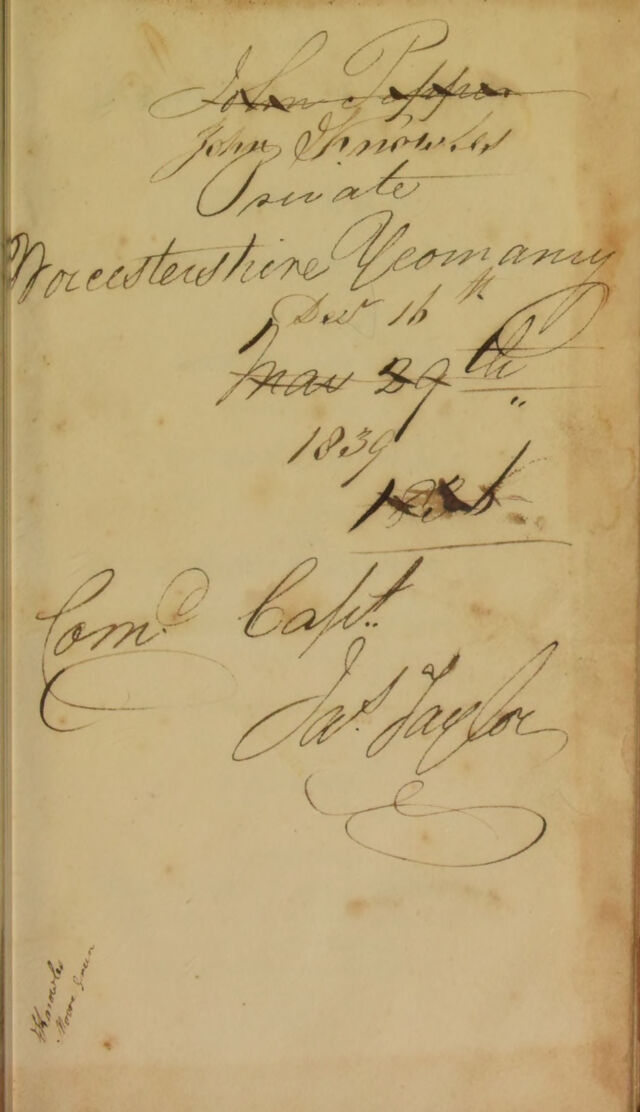 John Pepper
John Knowles
Private
Worcestershire Yeomanry
Dec 16th
May 29th
1839
Comd. Capt.
Jas. Taylor
Knowles
Green